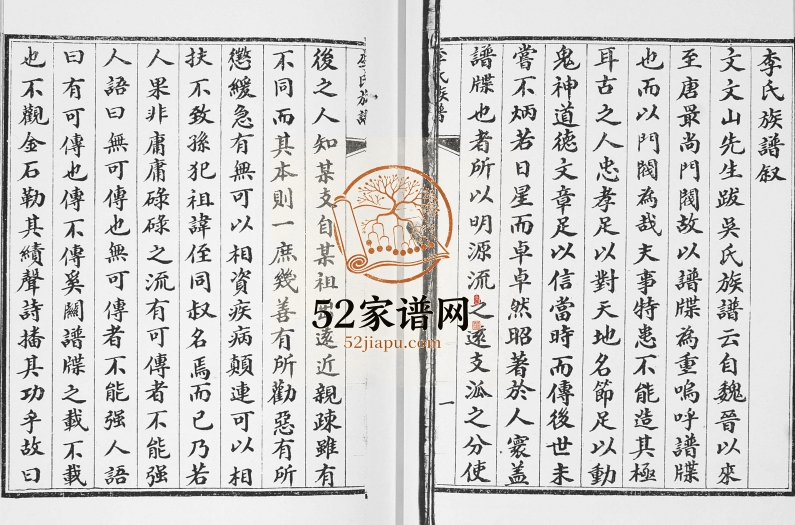 李氏族譜叙
文文山先生跋吳氏族譜云自魏晉以來
至唐最尚門閥故以譜牒為重嗚呼譜牒
也而以門閥為哉夫事特患不能造其極
耳古之人忠孝足以對天地名節足以動
鬼神道德文章足以信當時而傳後世未
嘗不炳若日星而卓卓然昭著於人寰蓋
譜牒也者所以明源流之遠支派之分使
李氏族譜
一
李氏族譜
後之人知某支自某祖遠近親疎雖有
不同而其本則一庶幾善有所勸惡有所
懲緩急有無可以相資疾病顛連可以相
扶不致孫犯祖諱侄同叔名焉而已乃若
人果非庸庸碌碌之流有可傳者不能強
人語曰無可傳也無可傳者不能强人語
曰有可傳也傳不傳奚關譜牒之載不載
也不觀金石勒其績聲詩播其功乎故曰
52家谱网
52jiapu.com